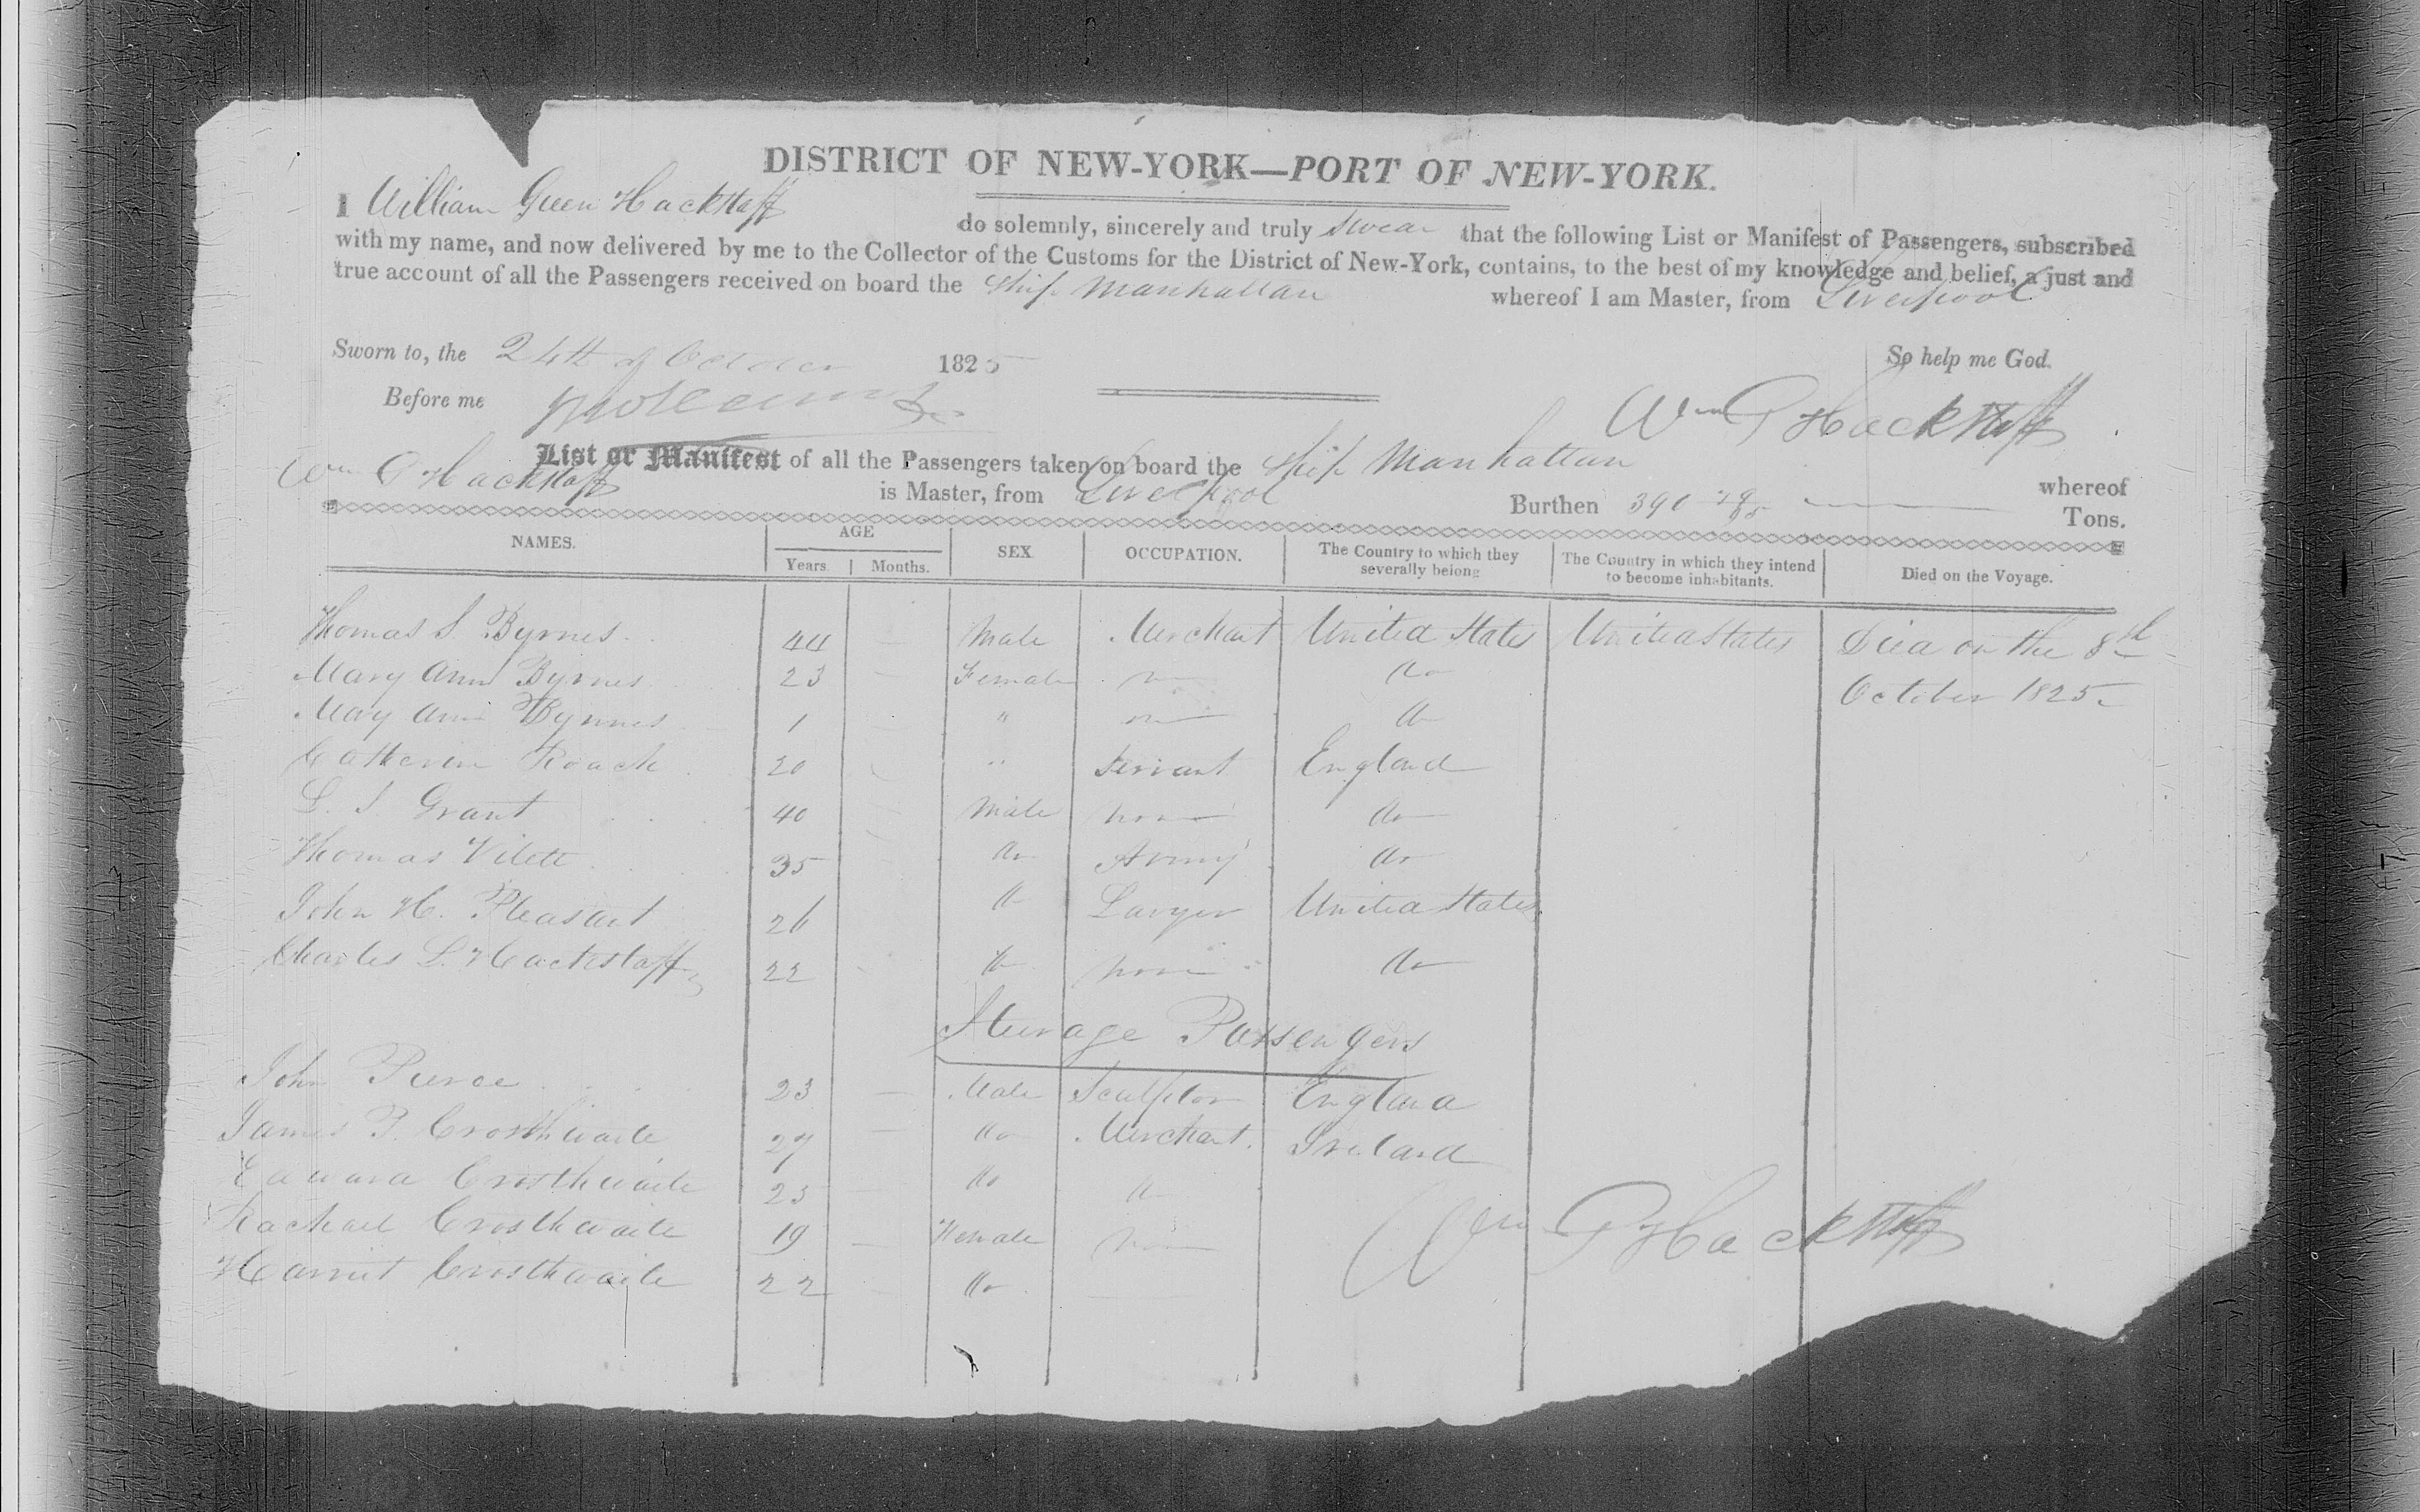 DISTRICT OF NEW-YORK—PORT OF NEW-YORK.
I William Green Hackstaff do solemnly, sincerely and truly swear that the following List or Manifest of Passengers, subscribed
with my name, and now delivered by me to the Collector of the Customs for the District of New-York, contains, to the best of my knowledge and belief, a just and
true account of all the Passengers received on board the Ship Manhattan whereof I am Master, from Liverpool
Sworn to, the 24th of October 1825 So help me God.
Before me Wm G Hackstaff
List or Manifest of all the Passengers taken on board the Ship Manhattan whereof
Wm G Hackstaff is Master, from Liverpool Burthen 390 Tons.
NAMES. AGE SEX OCCUPATION. The Country to which they severally belong The Country in which they intend to become inhabitants. Died on the Voyage.
Years. Months.
Thomas S. Byrnes 44 Male Merchant United States United States Died on the 8th
Mary Ann Byrnes 23 Female do October 1825
Mary Ann Byrnes 1 " do
Catherine Roach 20 " Servant England
L. S. Grant 40 Male none do
Thomas Vilett 35 do Army do
John H. Pleasant 26 do Lawyer United States
Charles L. Hackstaff 22 do none do
Steerage Passengers
John Pierce 23 Male Sculptor England
James P. Crosthwaite 27 do Merchant. Ireland
Edward Crosthwaite 25 do do
Rachael Crosthwaite 19 Female none
Harriet Crosthwaite 22 do
Wm G Hackstaff